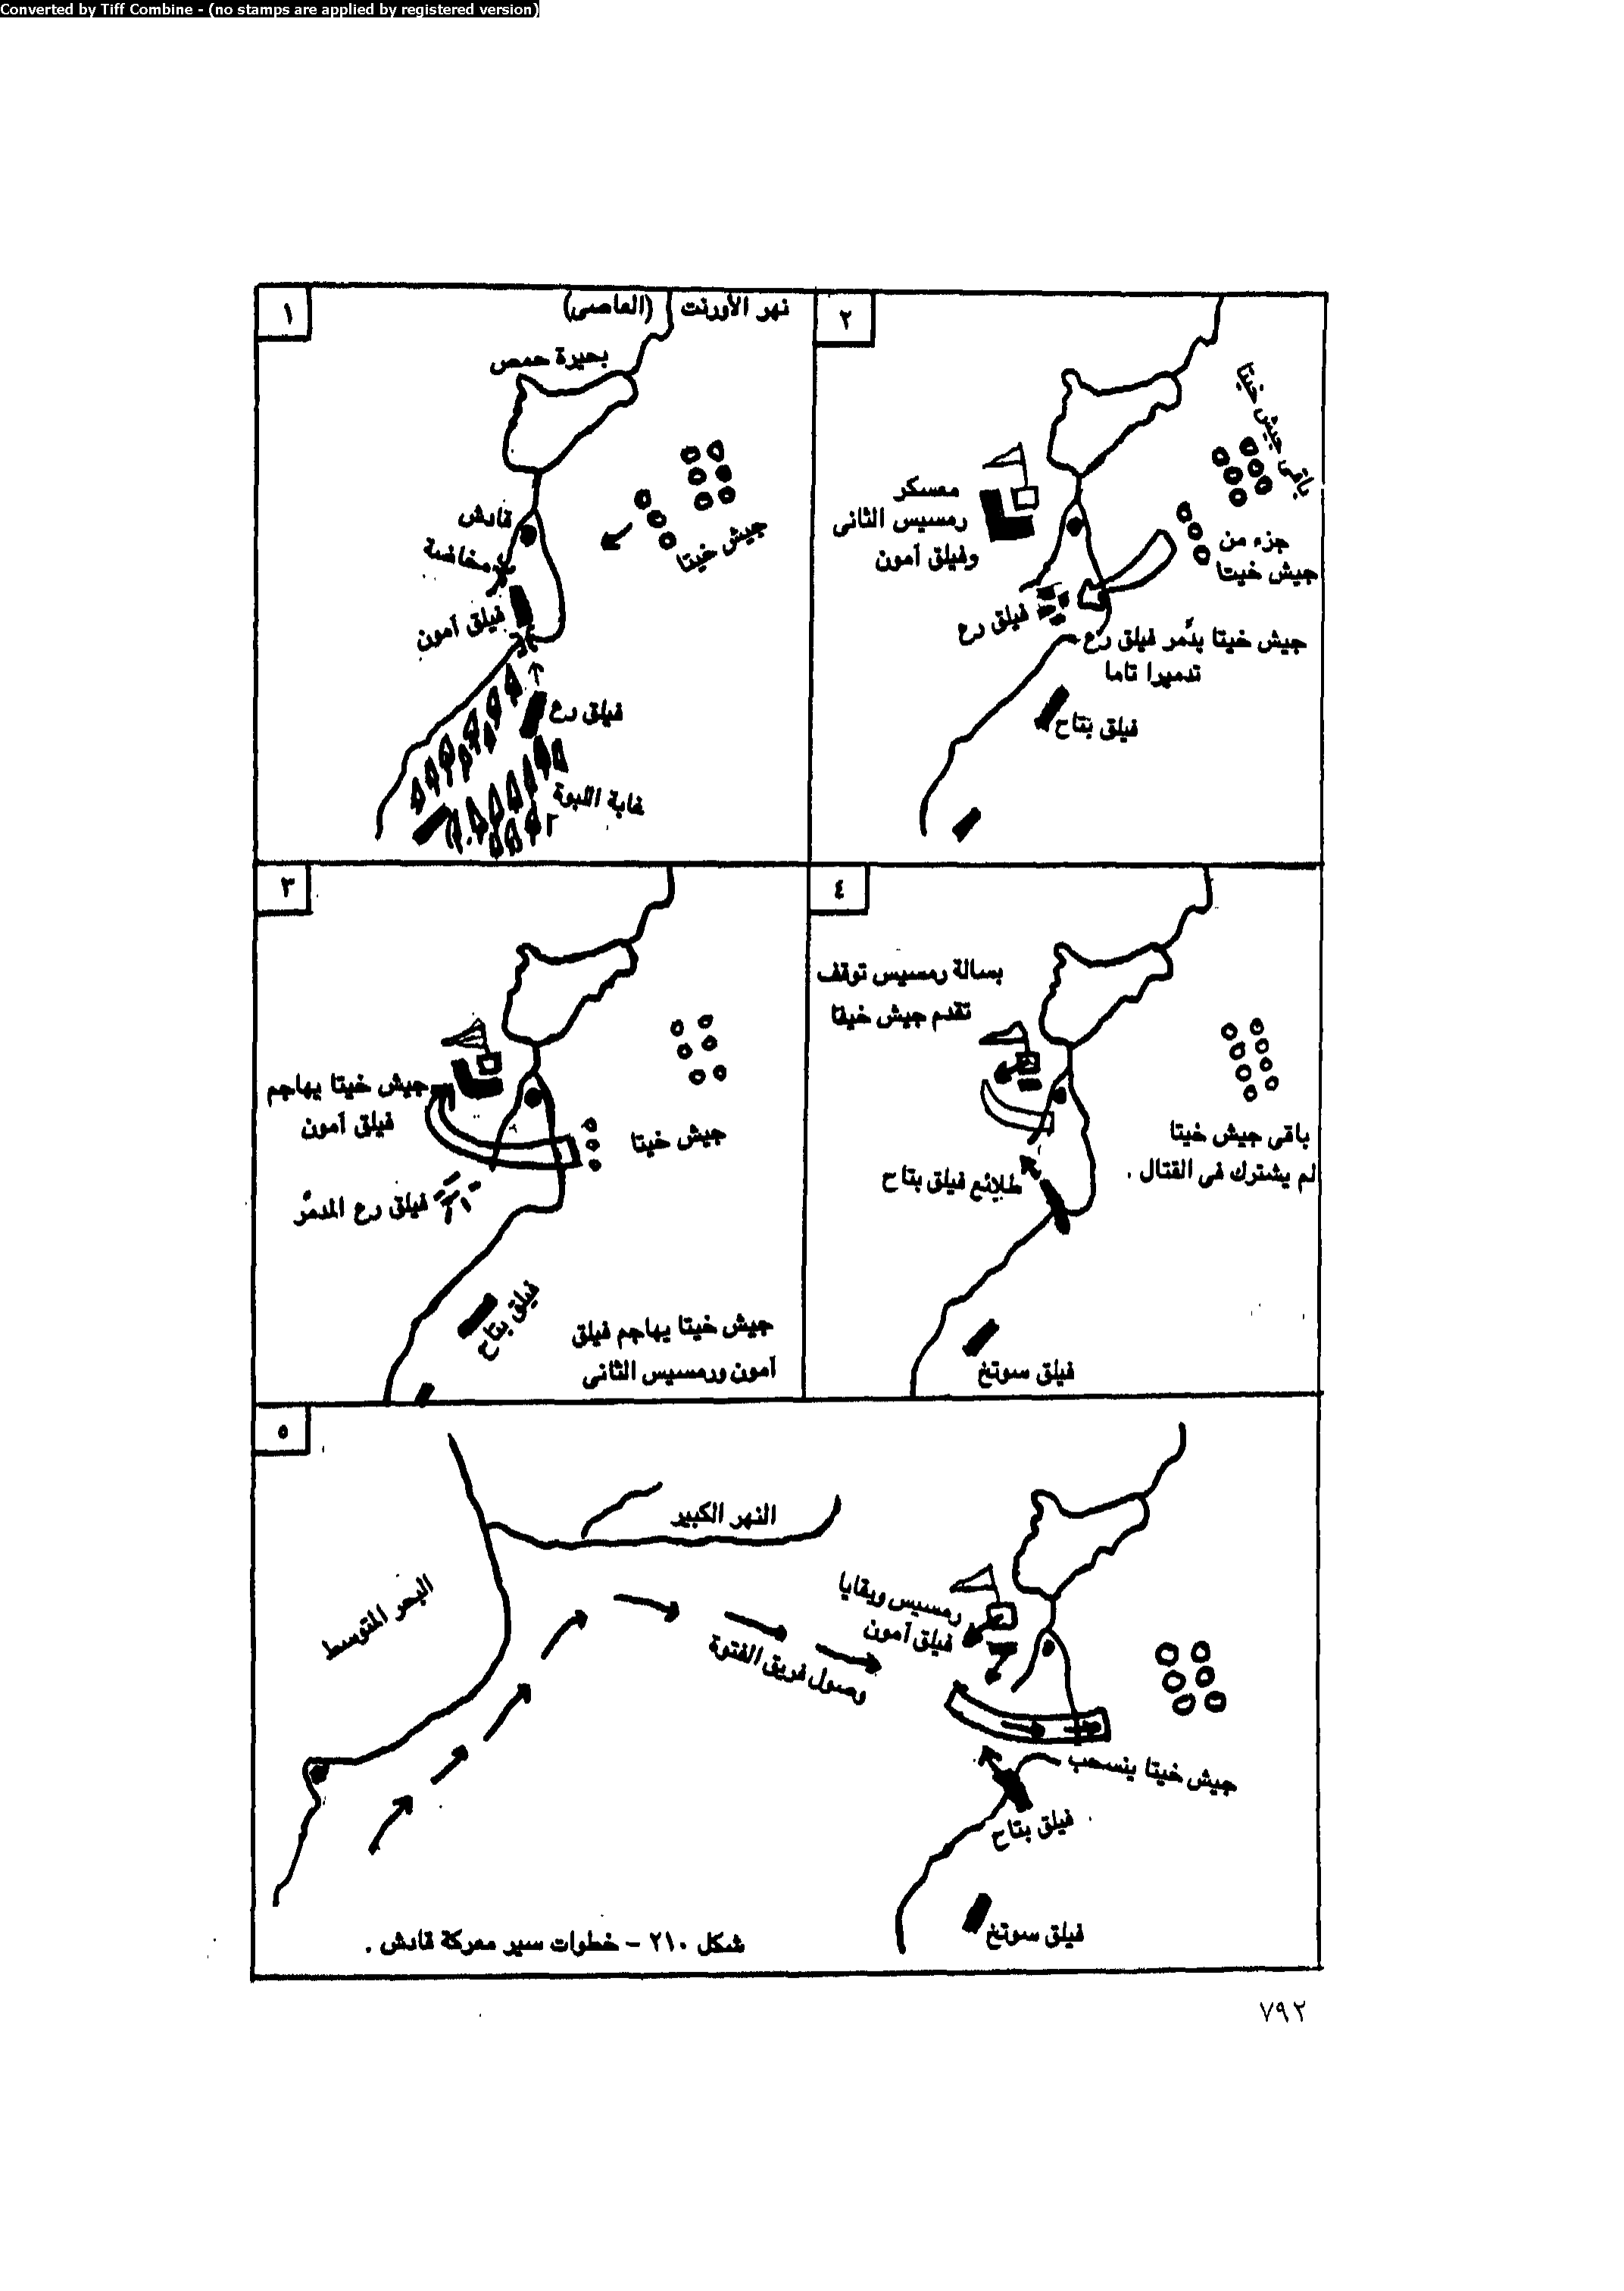 Converted by Tiff Combine - (no stamps are applied by registered version)
١
نهر الأورنت (العاصى)
بحيرة حمص
قادش
مخاضة
جيش خيتا
فيلق آمون
فيلق رع
غابة اللبوة
٢
باقى جيش خيتا
معسكر
رمسيس الثانى
وفيلق آمون
جزء من
جيش خيتا
فيلق رع
جيش خيتا يدمَّر فيلق رع
تدميرا تاما
فيلق بتاح
٣
جيش خيتا يهاجم
فيلق آمون
جيش خيتا
فيلق رع المدمَّر
فيلق بتاح
جيش خيتا يهاجم فيلق
آمون ورمسيس الثانى
٤
بسالة رمسيس توقف
تقدم جيش خيتا
باقى جيش خيتا
لم يشترك فى القتال .
طلائع فيلق بتاح
فيلق سوتخ
٥
النهر الكبير
البحر المتوسط
رمسيس وبقايا
فيلق آمون
وصول فريق الفتوة
جيش خيتا ينسحب
فيلق بتاح
فيلق سوتخ
شكل ٢١٠ – خطوات سير معركة قادش .
٧٩٢